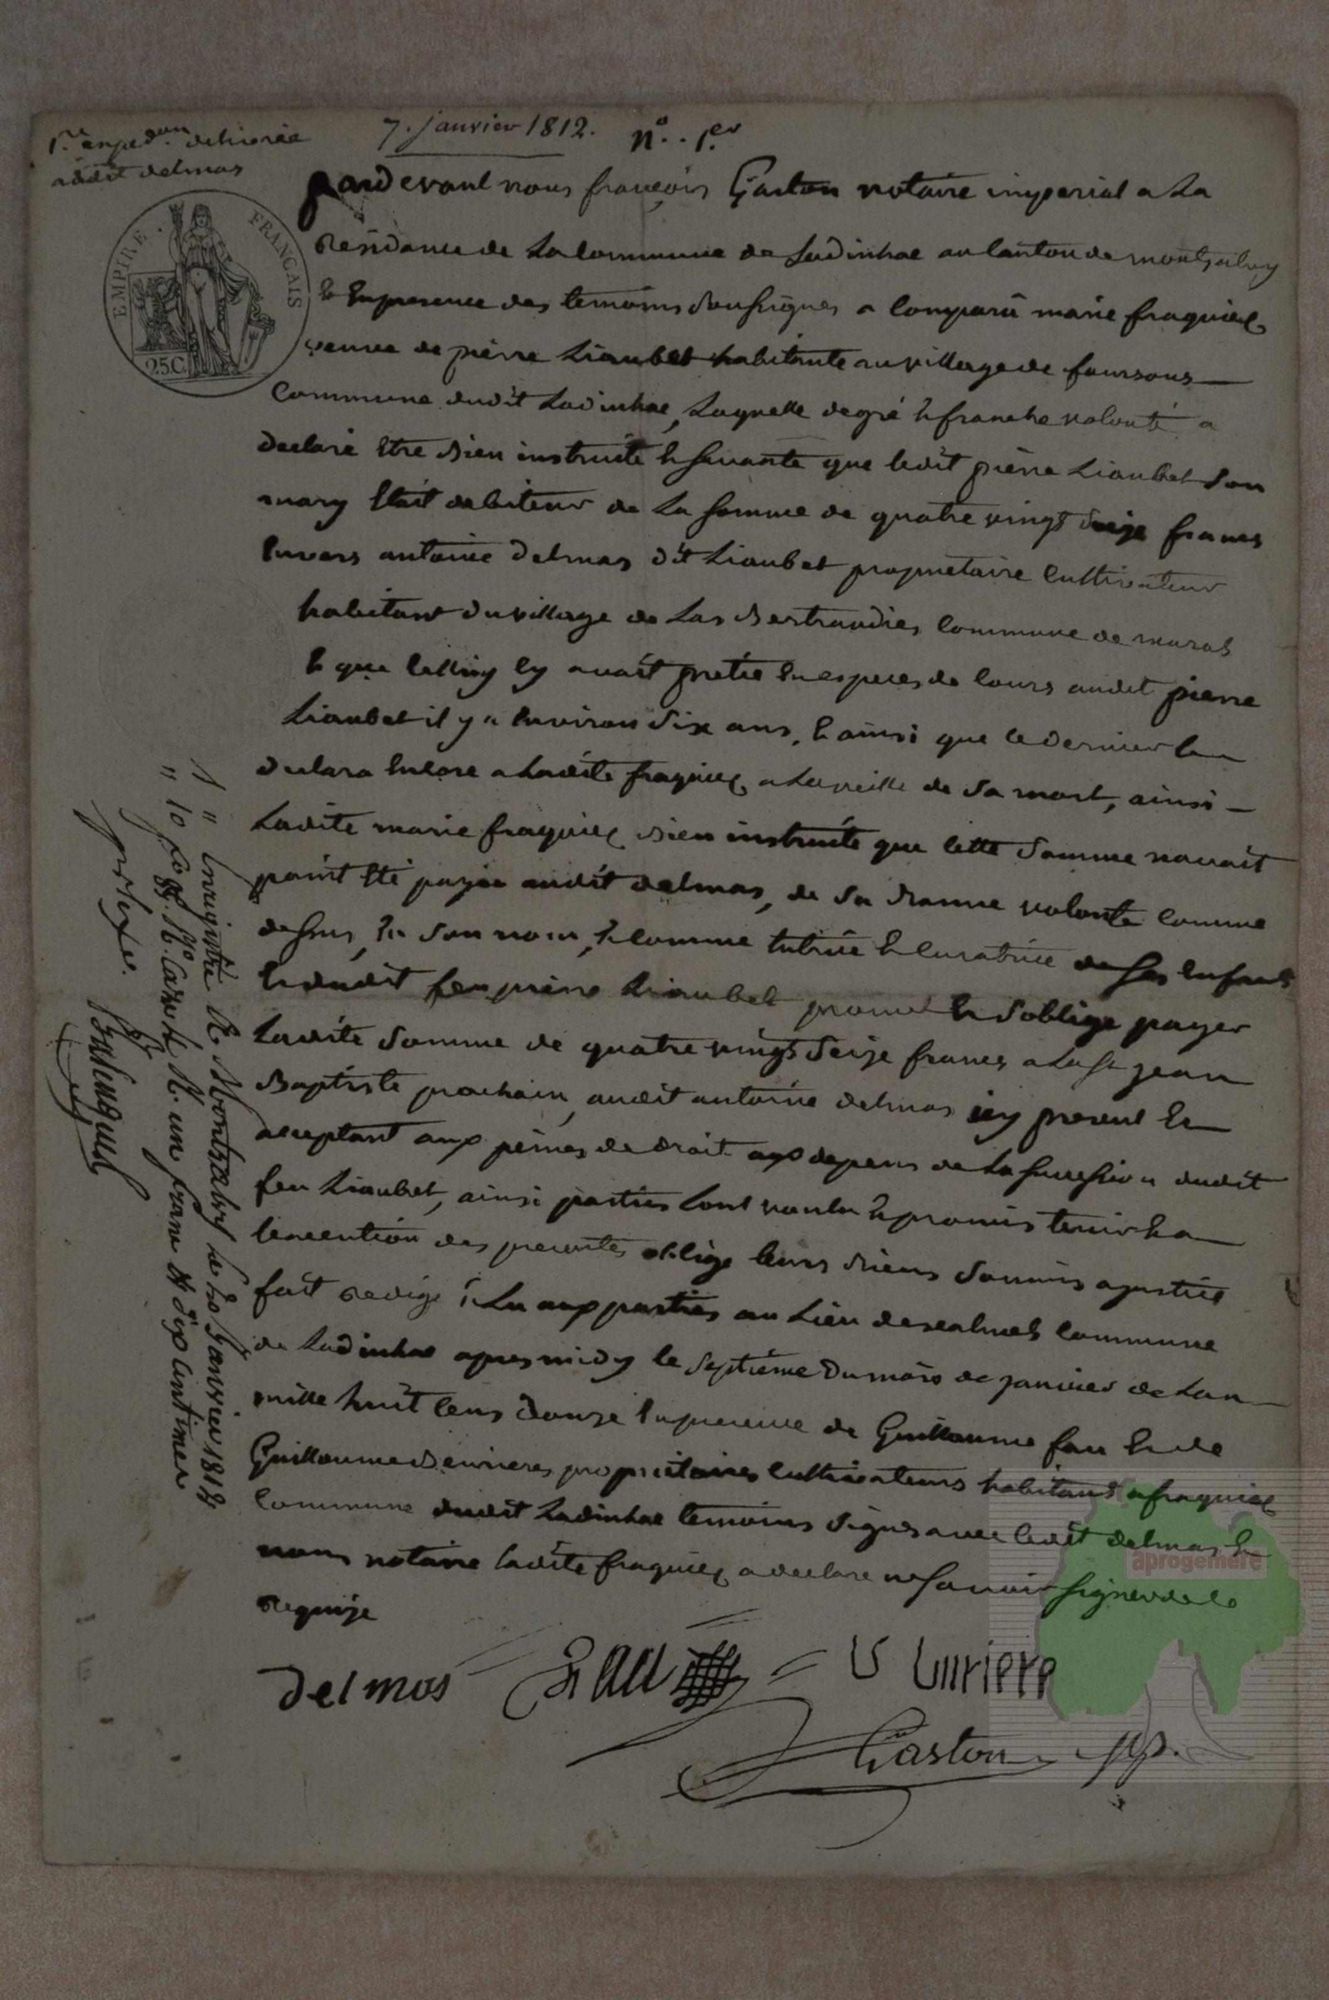 1.re exped.on delivrée
audit delmas
7. janvier 1812.
n.° 1.er
EMPIRE FRANÇAIS
25 C.
pardevant nous françois Gaston notaire imperial a la
residance de la commune de ladinhac au canton de montsalvy
et en presence des temoins soussignes a comparu marie fraquier
veuve de pierre Liaubet habitante au village de foursous
commune dudit ladinhac, laquelle de gré et franche volonté a
declaré etre bien instruite et savante que ledit pierre Liaubet son
mary etait debiteur de la somme de quatre vingt seize francs
envers antoine delmas dit Liaubet proprietaire cultivateur
habitant du village de las Bertrandies commune de
et que celluy cy avait pretée en especes de cours audit pierre
Liaubet il y a environ six ans, et ainsi que ce dernier le
declara encore a ladite fraquier a la veille de sa mort, ainsi
ladite marie fraquier bien instruite que cette somme navait
point eté payée audit delmas, de sa bonne volonte comme
dessus, en son nom, et comme tutrice et curatrice de ses enfants
et dudit feu pierre Liaubet promet et soblige payer
ladite somme de quatre vingt seize francs a la st jean
Baptiste prochain, audit antoine delmas icy present et
acceptant aux peines de droit aux depens de la succession dudit
feu Liaubet, ainsi parties lont voulu et promis tenir
lexecution des presentes oblige leurs biens soumis a justice
fait redigé et lu aux parties au lieu de commune
de ladinhac apres midy le septieme du mois de janvier de lan
mille huit cens douze en presence de Guillaume fau et de
Guillaume proprietaires cultivateurs habitans a fraquier
commune dudit ladinhac temoins signes avec ledit delmas et
nous notaire ladite fraquier a declare ne savoir signer de ce
requise
delmas
Gaston
Enregistré a Montsalvy le janvier 1812
R. un franc dix centimes
aprogemere